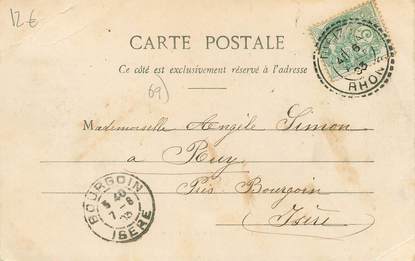 12 €
CARTE POSTALE
Ce côté est exclusivement réservé à l'adresse
69)
RHONE
Mademoiselle Angèle Simon
a Ruy
Près Bourgoin
Isère
BOURGOIN
ISERE